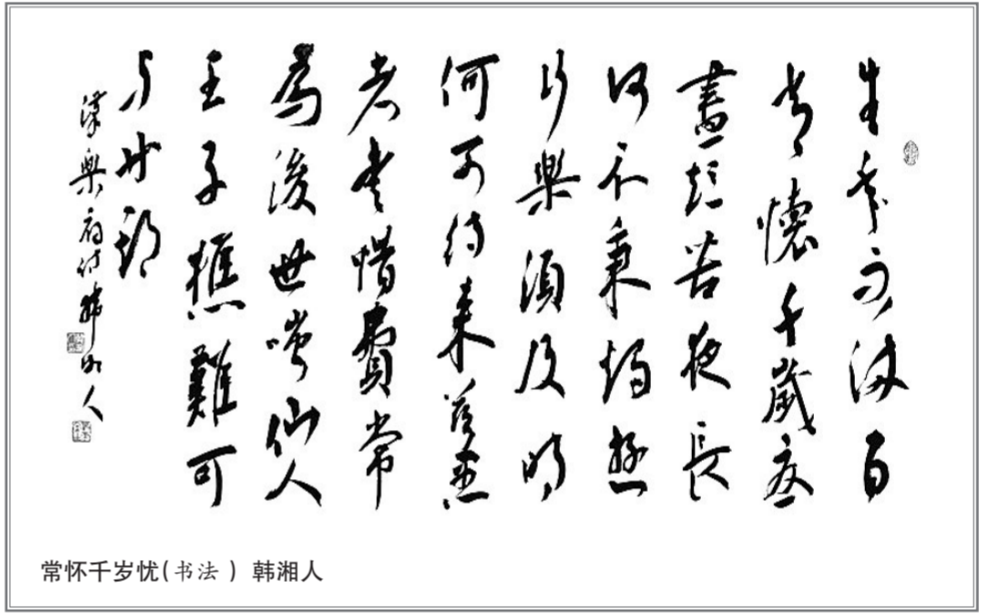 生年不满百
常懷千歲憂
晝短苦夜長
何不秉燭遊
行樂須及時
何可待来兹愚
者愛惜費常
為後世嗤仙人
王子樵難可
与等期
漢樂府诗韩湘人
常怀千岁忧(书法) 韩湘人